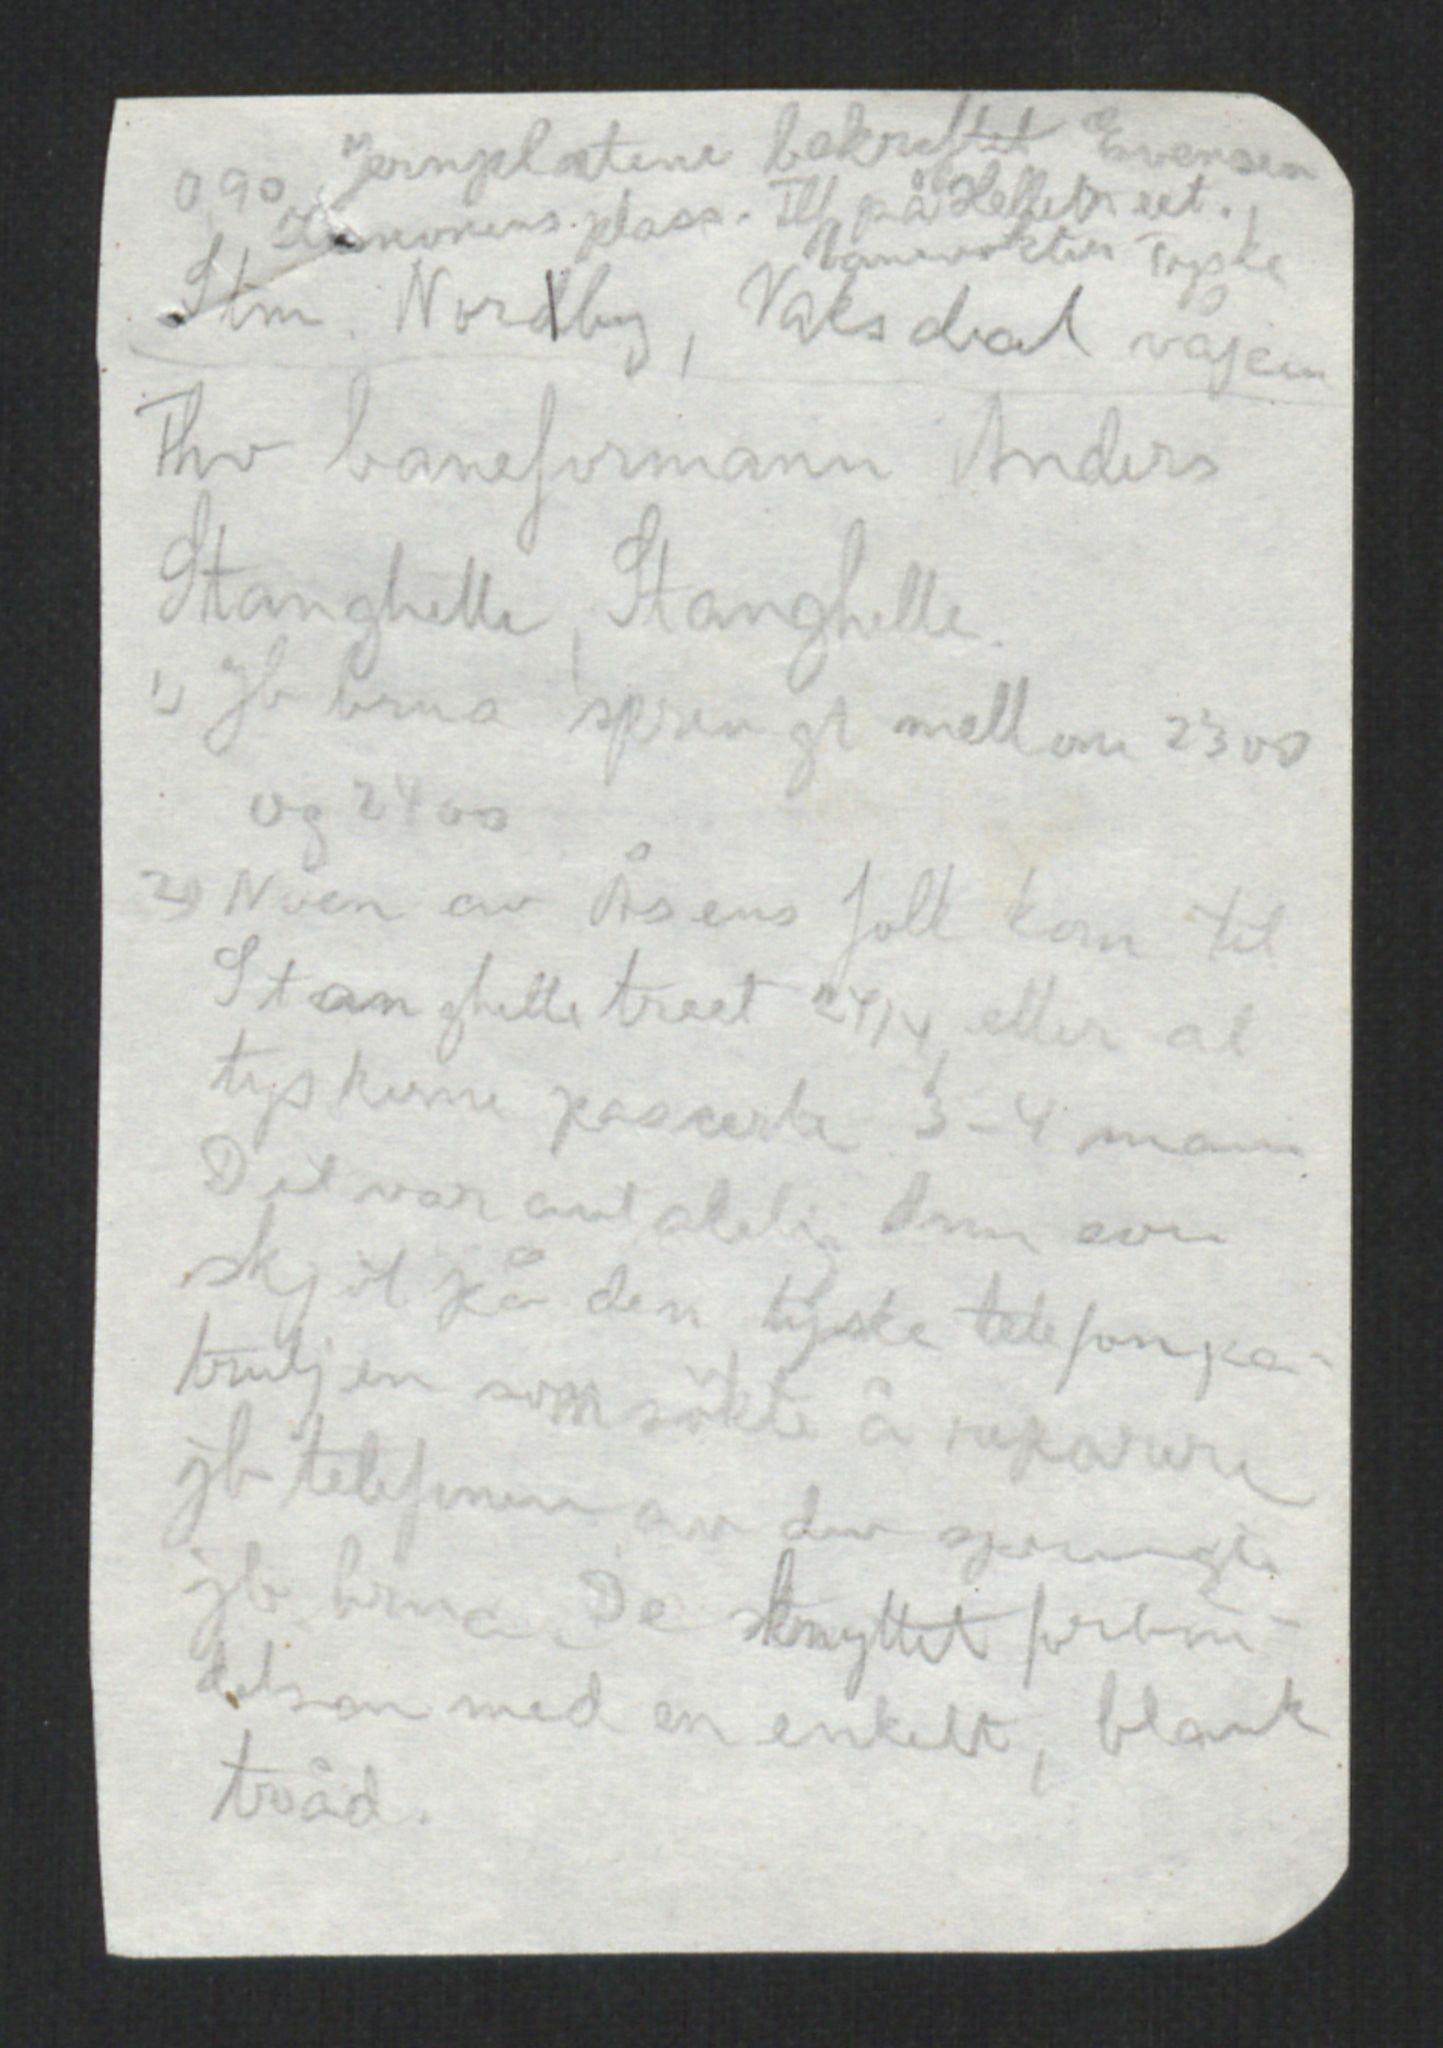 0,90 Jernplatene bekreftet Evensen
Kanonens plass. Ild på Helletreet.
banevokter Tyske
Stm. Nordby, Vaksdal
Thv baneformann Anders
Stanghelle, Stanghelle.
1) Jb brua sprengt mellom 2300
og 2400
2) Noen av Åsens folk kom til
Stanghelletreet 24/4, etter at
tyskerne passerte 3-4 mann
Det var antakelig dem som
skjöt på den tyske telefonpa-
truljen som sökte å reparere
jb telefonen av den sprengte
jb brua. De knyttet forbin-
delsen med en enkelt, blank
tråd.